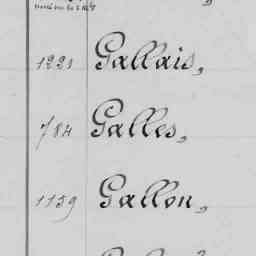 1221 Gallais,
784 Galles,
1159 Gallon,